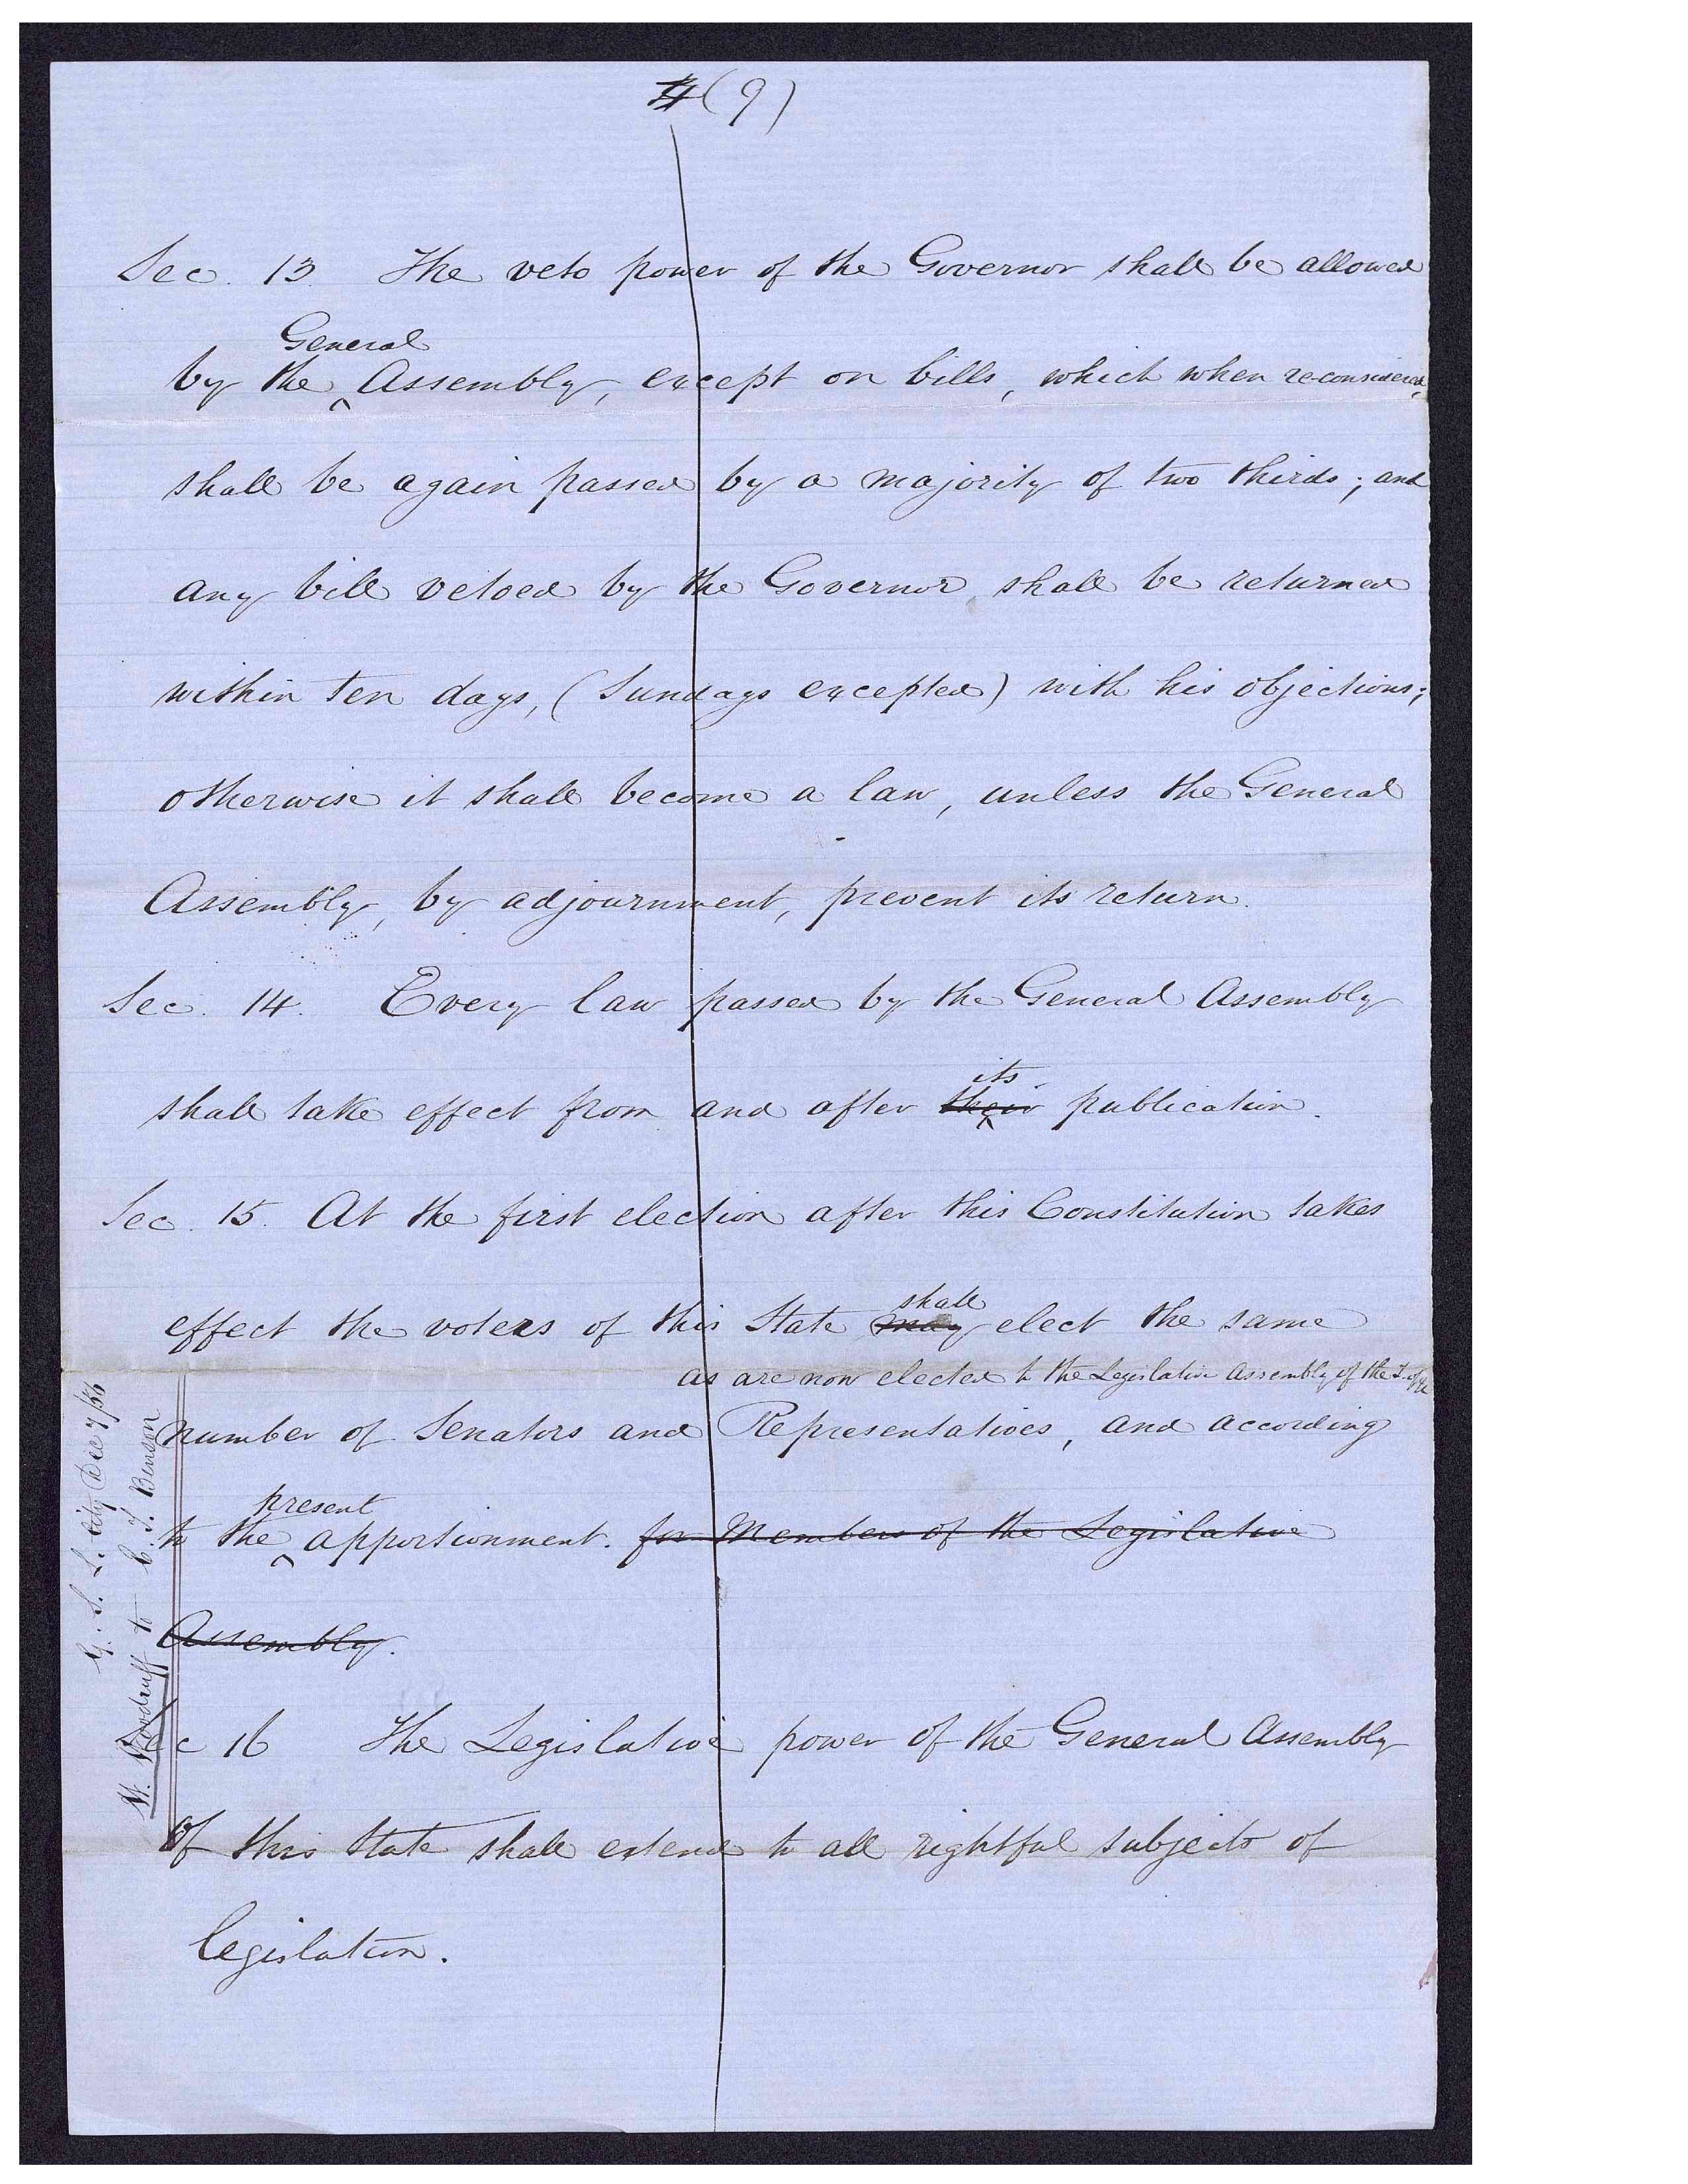 (9)
Sec. 13. The veto power of the Governor shall be allowed
General
by the Assembly, except on bills, which when re-considered,
shall be again passed by a majority of two thirds; and
any bill vetoed by the Governor, shall be returned
within ten days, (Sundays excepted) with his objections;
otherwise it shall become a law, unless the General
Assembly, by adjournment, prevent its return.
Sec. 14. Every law passed by the General Assembly
its
shall take effect from and after their publication.
Sec. 15. At the first election after this Constitution takes
shall
effect the voters of this State may elect the same
as are now elected to the Legislative Assembly of the
number of Senators and Representatives, and according
present
to the apportionment. for Members of the Legislative
Assembly.
Sec 16 The Legislative power of the General Assembly
of this State shall extend to all rightful subjects of
legislation.
G. S. L. City Dec 7/56
W. Woodruff to E. T. Benson